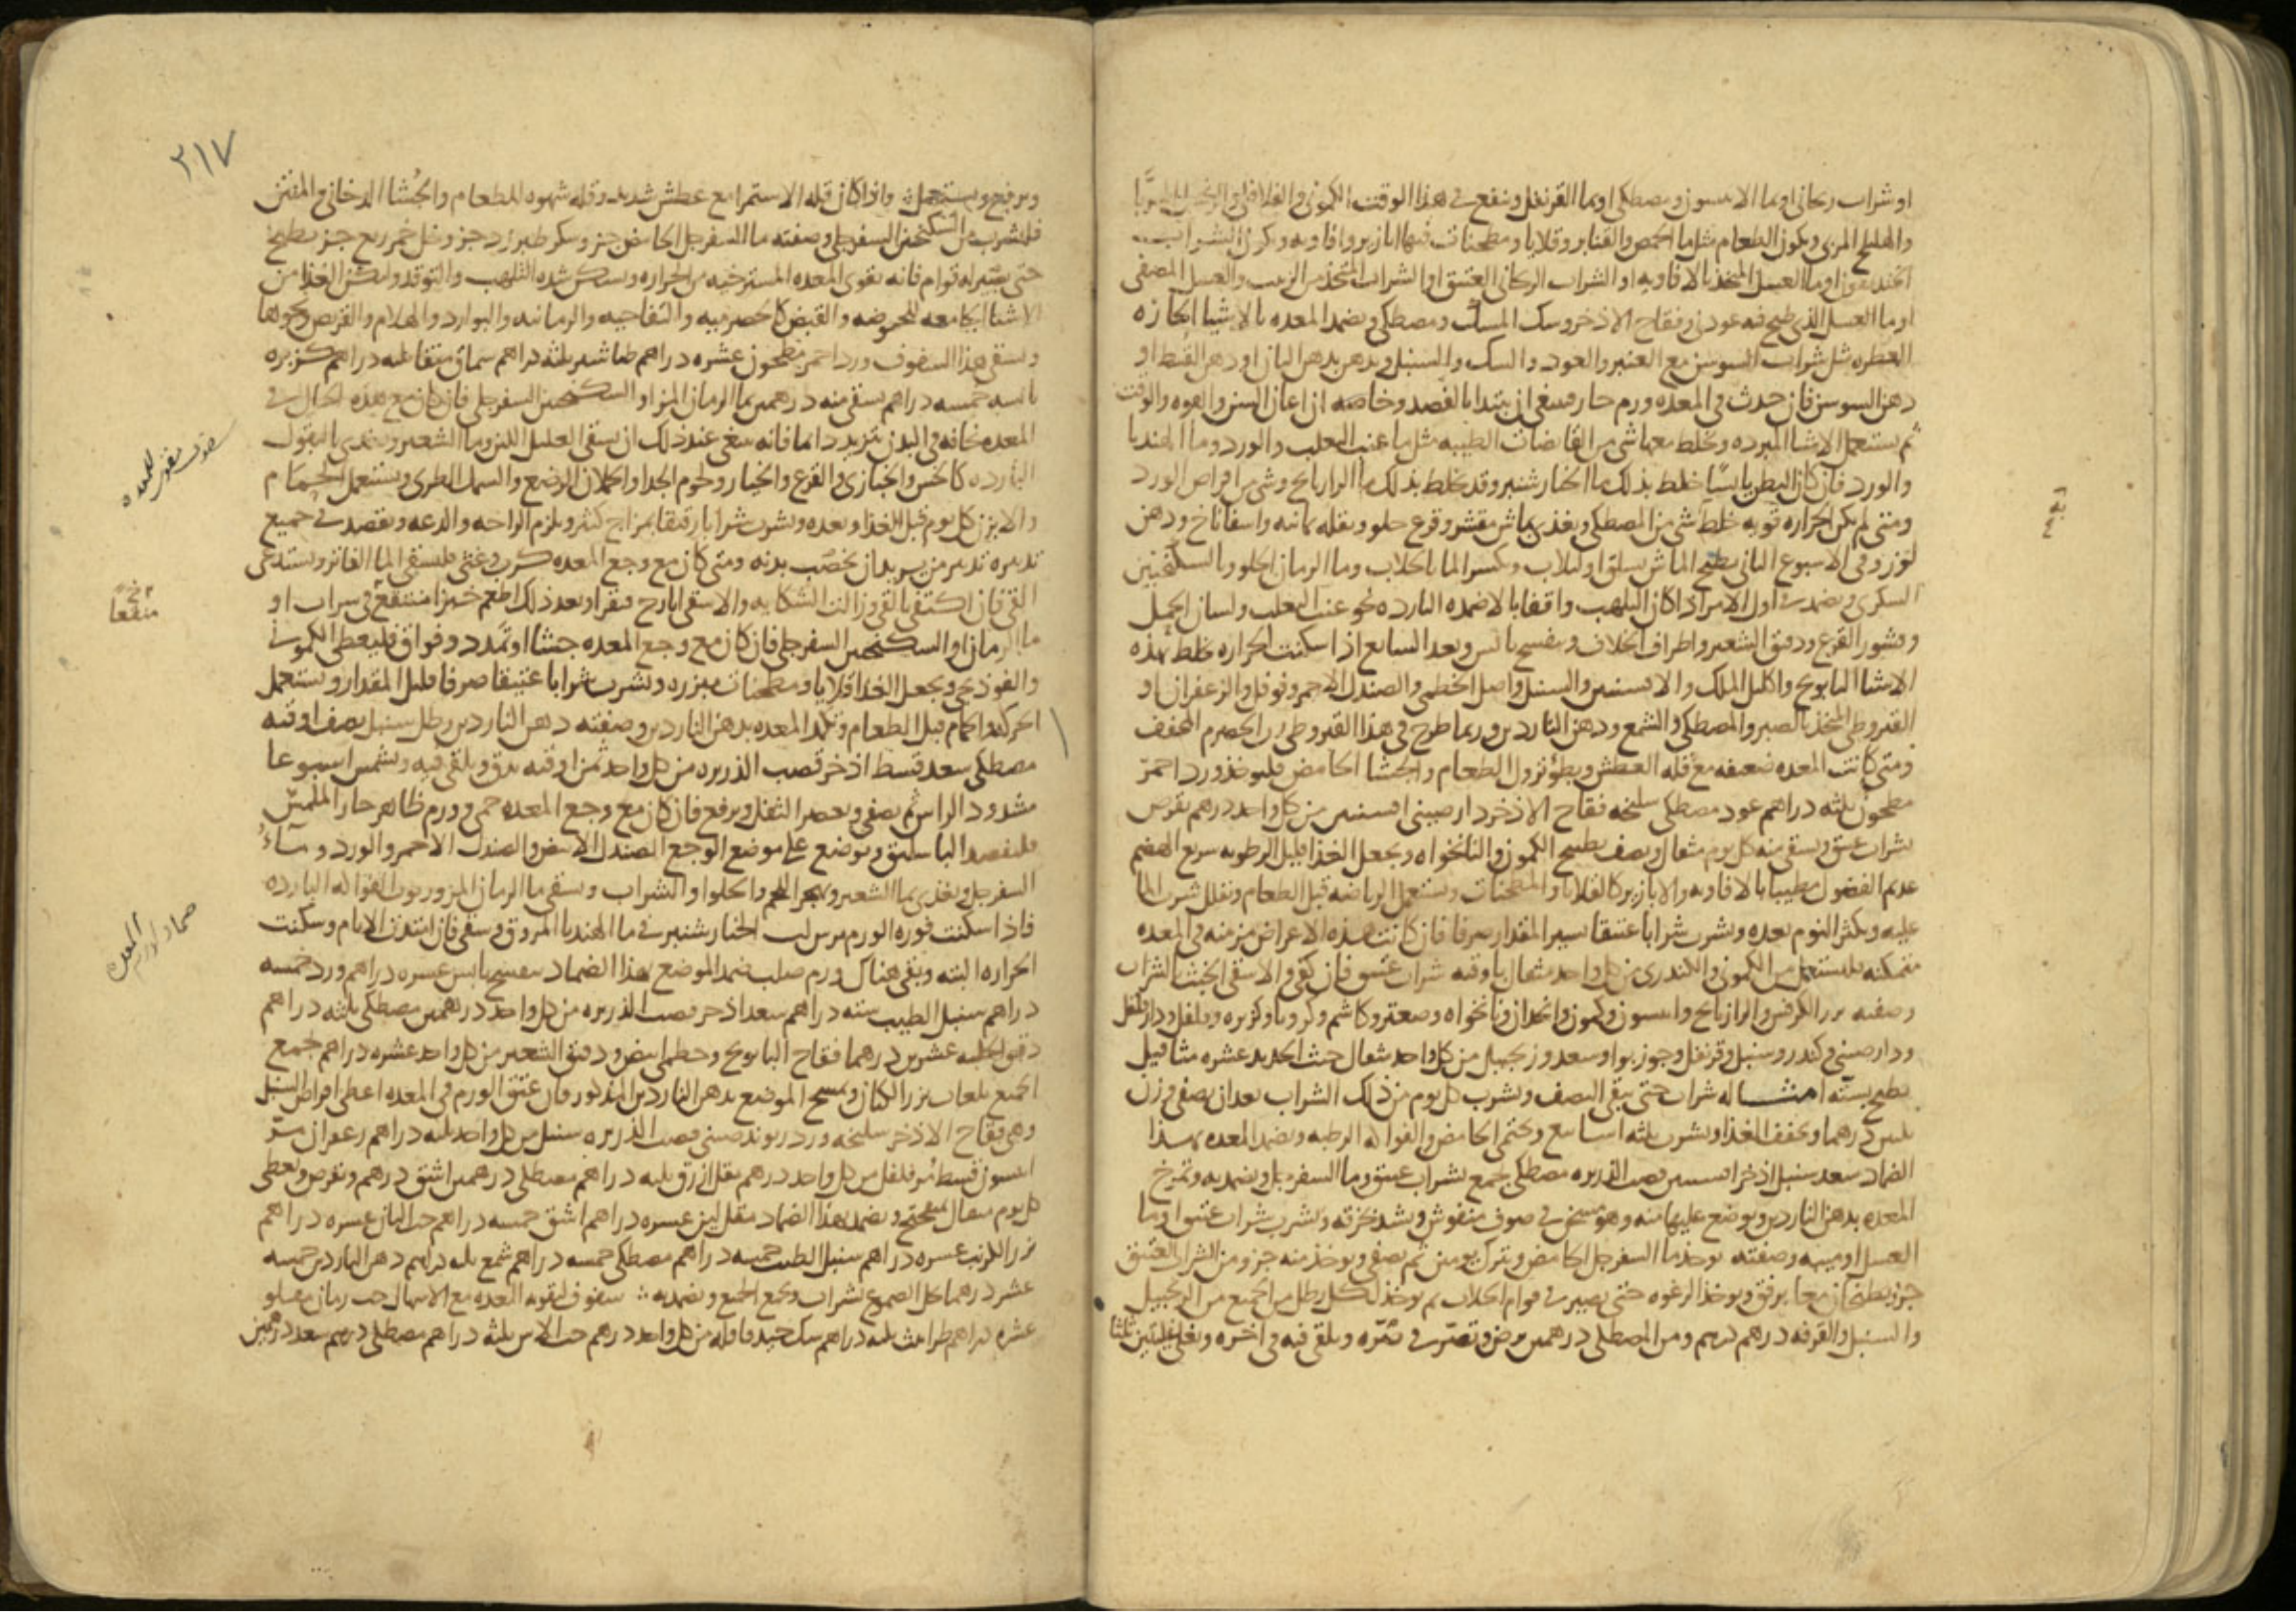 او شراب ريحانى او بما الانيسون ومصطكى او بما القرنفل وينفع فى هذا الوقت الكمونى والفلافلى والزنجبيل المربا
والهليلج المربى ويكون الطعام مثل ما الحمص والقنابر وقلايا ومطجنات فيها ابازير وافاويه ويكون الشراب
الخنديقون او ما العسل المتخذ بالافاويه او الشراب الريحانى العتيق او الشراب المتخذ من الزبيب والعسل المصفى
او ما العسل الذى طبخ فيه عود نى وفقاح الاذخر وسك المسك ومصطكى ويضمد المعده بالاشيا الحاره
العطره مثل شراب السوسن مع العنبر والعود والسك والسنبل ويدهن بدهن البان او دهن القسط او
دهن السوسن فان حدث فى المعده ورم حار فينبغى ان يبتدا بالفصد وخاصه ان اعان السن والقوه والوقت
ثم يستعمل الاشيا المبرده ويخلط معها شى من القابضات الطيبه مثل ما عنب الثعلب والورد وما الهندبا
والورد فان كان البطن يابسا خلط بذلك ما الخيار شنبر وقد يخلط بذلك ما الرازيانج وشى من اقراص الورد
ومتى لم يكن الحراره قويه خلط شى من المصطكى ويغذى بماش مقشر وقرع حلو وبقله يمانيه واسفاناخ ودهن
لوز وفى الاسبوع الثانى يطبخ الماش بسلق او لبلاب ويكسر الما بالجلاب وما الرمان الحلو وبالسكنجبين
السكرى ويضمد فى اول الامر اذا كان التلهب واقفا بالاضمده البارده نحو عنب الثعلب ولسان الحمل
وقشور القرع ودقيق الشعير واطراف الخلاف وبنفسج يابس وبعد السابع اذا سكنت الحراره يخلط بهذه
الاشيا البابونج واكليل الملك والافسنتين والسنبل واصل الخطمى والصندل الاحمر وفوفل والزعفران او
القيروطى المتخذ بالصبر والمصطكى والشمع ودهن الناردين وربما طرح فى هذا القيروطى الحصرم المجفف
ومتى كانت المعده ضعيفه مع قله العطش وبطو نزول الطعام والجشا الحامض فليوخذ ورد احمر
مطحون ثلثه دراهم عود مصطكى سليخه فقاح الاذخر دارصينى افسنتين من كل واحد درهم يقرص
بشراب عتيق ويسقى منه كل يوم مثقال ونصف بطبيخ الكمون والنانخواه ويجعل الغذا قليل الرطوبه سريع الهضم
عديم الفضول مطيبا بالافاويه والابازير كالقلايا والمطجنات ويستعمل الرياضه قبل الطعام ويقلل شرب الما
عليه ويكثر النوم بعده ويشرب شرابا عتيقا يسير المقدار صرفا فان كانت هذه الاعراض مزمنه فى المعده
متمكنه فليستعمل من الكمونى والكندرى من كل واحد مثقال باوقيه شراب عتيق فان كفى والا سقى الخبث الشراب
وصفته بزر الكرفس والرازيانج وانيسون وكمون وانجدان ونانخواه وصعتر وكاشم وكرويا وكزبره وفلفل ودارفلفل
ودارصينى وكندر وسنبل وقرنفل وجوزبوا وسعد وزنجبيل من كل واحد مثقال خبث الحديد عشره مثاقيل
يطبخ بسته امثاله شراب حتى يبقى النصف ويشرب كل يوم من ذلك الشراب بعد ان يصفى وزن
ثلثين درهما ويخفف الغذا ويشرب ثلثه اسابيع ويحتمى الحامض والفواكه الرطبه ويضمد المعده بهذا
الضماد سعد سنبل اذخر افسنتين قصب الذريره مصطكى يجمع بشراب عتيق وما السفرجل ويضمد به وتمرخ
المعده بدهن الناردين ويوضع عليها منه وهو مسخن فى صوف منفوش ويشد بخرقه ويشرب شراب عتيق او ما
العسل او ميبه وصفته يوخذ ما السفرجل الحامض ويترك يومين ثم يصفى ويوخذ منه جزو ومن الشراب العتيق
جزو يطبخان معا برفق ويوخذ الرغوه حتى يصير فى قوام الجلاب ثم يوخذ لكل رطل من الجميع من الزنجبيل
والسنبل والقرفه درهم درهم ومن المصطكى درهمين يرض وتصر فى صره ويلقى فيه فى اخره ويغلى غليتين ثلثا
٣١٧
ويرفع ويستعمل واذا كان قله الاستمرا مع عطش شديد وقله شهوه للطعام والجشا الدخانى والمنتن
فليشرب من السكنجبين السفرجلى وصفته ما السفرجل الحامض جزو سكر طبرزد جزو خل خمر ربع جزو يطبخ
حتى يصير له قوام فانه يقوى المعده المسترخيه من الحراره ويسكن شده التلهب والتوقد وليكن الغذا من
الاشيا الجامعه للحموضه والقبض كالحصرميه والتفاحيه والرمانيه والبوارد والهلام والقريص ونحوها
ويسقى هذا السفوف ورد احمر مطحون عشره دراهم طباشير ثلثه دراهم سماق منقا ثلثه دراهم كزبره
يابسه خمسه دراهم يسقى منه درهمين بما الرمان المز او السكنجبين السفرجلى فان كان مع هذه الحال فى
المعده نحافه فى البدن تزيد دايما فانه ينبغى عند ذلك ان يسقى العليل اللبن وما الشعير ويغذى بالبقول
البارده كالخس والخبازى والقرع والخيار ولحوم الجدا والحملان الرضع والسمك الطرى ويستعمل الحمام
والابزن كل يوم قبل الغذا وبعده ويشرب شرابا رقيقا بمزاج كثير ويلزم الراحه والدعه ويقصد فى جميع
تدبيره تدبير من يريد ان يخصب بدنه ومتى كان مع وجع المعده كرب وغثى فليسقى الما الفاتر ويستدعى
القى فان اكتفى بالقى وزالت الشكايه والا سقى ايارج فيقرا وبعد ذلك اطعم خبزا منتقع فى شراب او
ما الرمان او السكنجبين السفرجلى فان كان مع وجع المعده جشا او تمدد وفواق فليعطى الكمونى
والفوذنجى ويجعل الغذا قلايا ومطجنات مبزره ويشرب شرابا عتيقا صرفا قليل المقدار ويستعمل
الحركه والحمام قبل الطعام وتكمد المعده بدهن الناردين وصفته دهن الناردين رطل سنبل نصف اوقيه
مصطكى سعد قسط اذخر قصب الذريره من كل واحد ثمن اوقيه يدق ويلقى فيه ويشمس اسبوعا
مشدود الراس ثم يصفى ويعصر الثفل ويرفع فان كان مع وجع المعده حمى وورم ظاهر حار الملمس
فليفصد الباسليق ويوضع على موضع الوجع الصندل الابيض والصندل الاحمر والورد وماء
السفرجل ويغذى بما الشعير ويهجر اللحم والحلوا والشراب ويسقى ما الرمان المز وربوب الفواكه البارده
فاذا سكنت فوره الورم يمرس لب الخيار شنبر فى ما الهندبا المروق ويسقى فان امتدت الايام وسكنت
الحراره البته وبقى هناك ورم صلب ضمد الموضع بهذا الضماد بنفسج يابس عشره دراهم ورد خمسه
دراهم سنبل الطيب سته دراهم سعد اذخر قصب الذريره من كل واحد درهمين مصطكى ثلثه دراهم
دقيق الحلبه عشرين درهما فقاح البابونج وخطمى ابيض ودقيق الشعير من كل واحد عشره دراهم يجمع
الجميع بلعاب بزر الكتان ويمسح الموضع بدهن الناردين المذكور فان عتق الورم فى المعده اعطى اقراص السنبل
وهى فقاح الاذخر سليخه ورد ريوند صينى قصب الذريره سنبل من كل واحد ثلثه دراهم زعفران مر
انيسون قسط مر فلفل من كل واحد درهم مقل ازرق ثلثه دراهم مصطكى درهمين اشق درهم ويقرص ويعطى
كل يوم مثقال بميفختج ويضمد بهذا الضماد مقل لين عشره دراهم اشق خمسه دراهم حب البان عشره دراهم
بزر الكرنب عشره دراهم سنبل الطيب خمسه دراهم مصطكى خمسه دراهم شمع ثلثه دراهم دهن الناردين خمسه
عشر درهما يحل الصموغ بشراب ويجمع الجميع ويضمد به سفوف لتقويه المعده مع الاسهال حب رمان مقلو
عشره دراهم طراثيث ثلثه دراهم سك جيد قاقله من كل واحد درهم حب الاس ثلثه دراهم مصطكى درهم سعد درهمين
سفوف مقوى للمعده
منقعا
ضماد لورم المعده